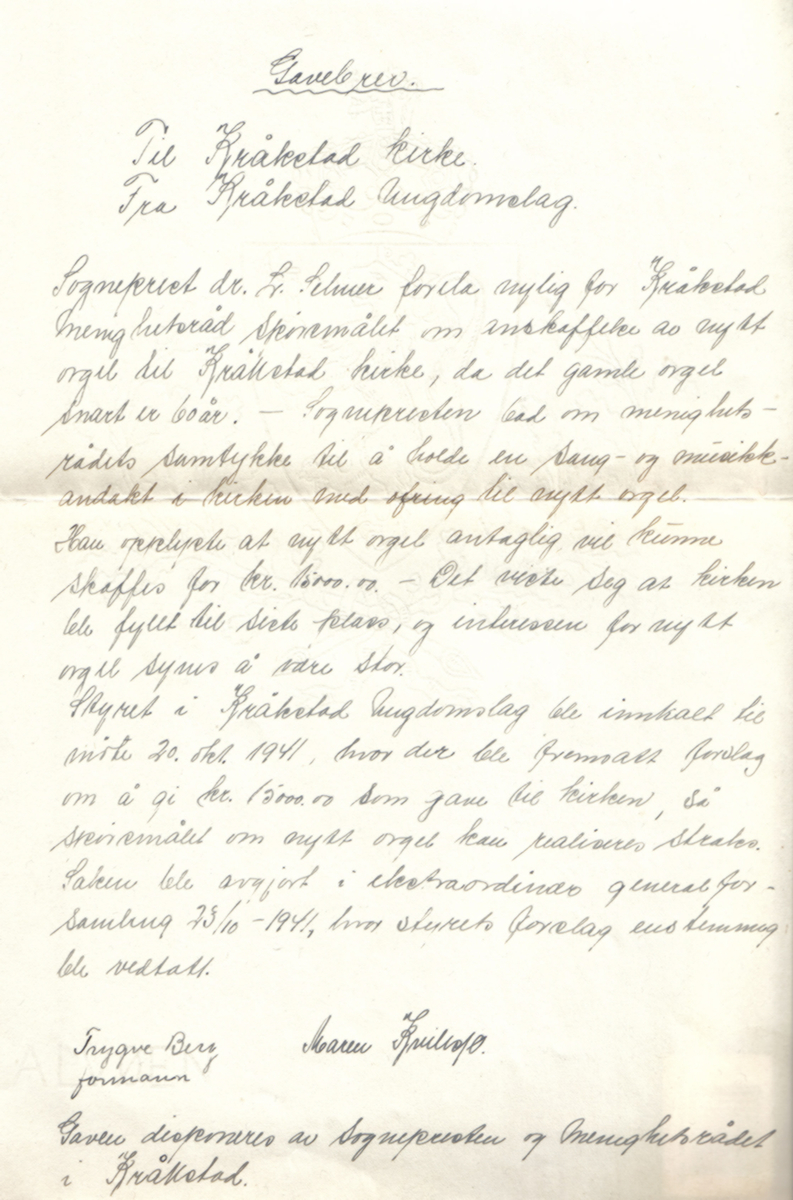 Gavebrev.
Til Kråkstad kirke.
Fra Kråkstad Ungdomslag.
Sogneprest dr. L. Selmer forela nylig for Kråkstad
Menighetsråd spörsmålet om anskaffelse av nytt
orgel til Kråkstad kirke, da det gamle orgel
snart er 60 år. – Sognepresten bad om menighets-
rådets samtykke til å holde en sang- og musikk-
andakt i kirken med ofring til nytt orgel.
Han opplyste at nytt orgel antaglig vil kunne
skaffes for kr. 15000.00. – Det viste seg at kirken
ble fyllt til siste plass, og interessen for nytt
orgel synes å være stor.
Styret i Kråkstad Ungdomslag ble innkalt til
möte 20. okt. 1941, hvor der ble fremsatt forslag
om å gi kr. 15000.00 som gave til kirken, så
spörsmålet om nytt orgel kan realiseres straks.
Saken ble avgjort i ekstraordinær generalfor-
samling 23/10 – 1941, hvor styrets forslag enstemmig
ble vedtatt.
Trygve Berg Maren
formann
Gaven disponeres av Sognepresten og Menighetsrådet
i Kråkstad.